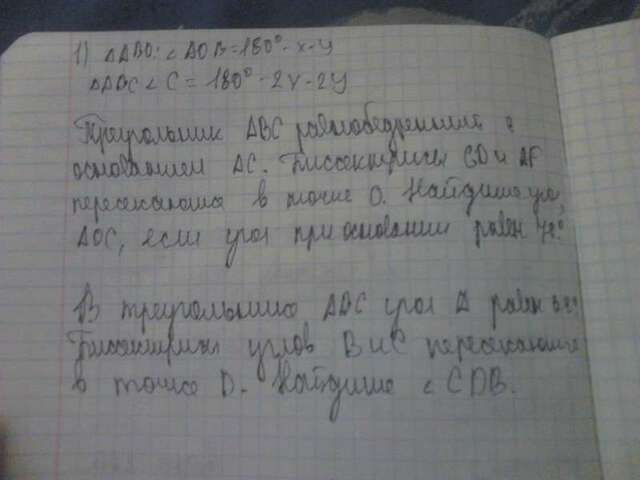 1) △ABO: ∠AOB=180°-x-y
△ABC ∠C = 180°-2x-2y
Треугольник ABC равнобедренный с
основанием AC. Биссектрисы CD и AF
пересекаются в точке O. Найдите угол
AOC, если угол при основании равен
В треугольнике ABC угол A равен
Биссектрисы углов B и C пересекаются
в точке D. Найдите ∠CDB.